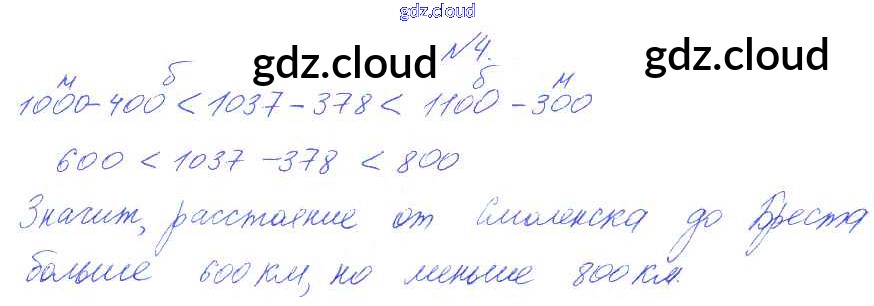 gdz.cloud
№4.
gdz.cloud gdz.cloud
м б б м
1000-400 < 1037-378 < 1100-300
600 < 1037-378 < 800
Значит, расстояние от Смоленска до Бреста
больше 600км, но меньше 800км.